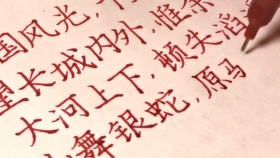 国风光，千
望长城内外，惟余
大河上下，顿失滔
舞银蛇，原马